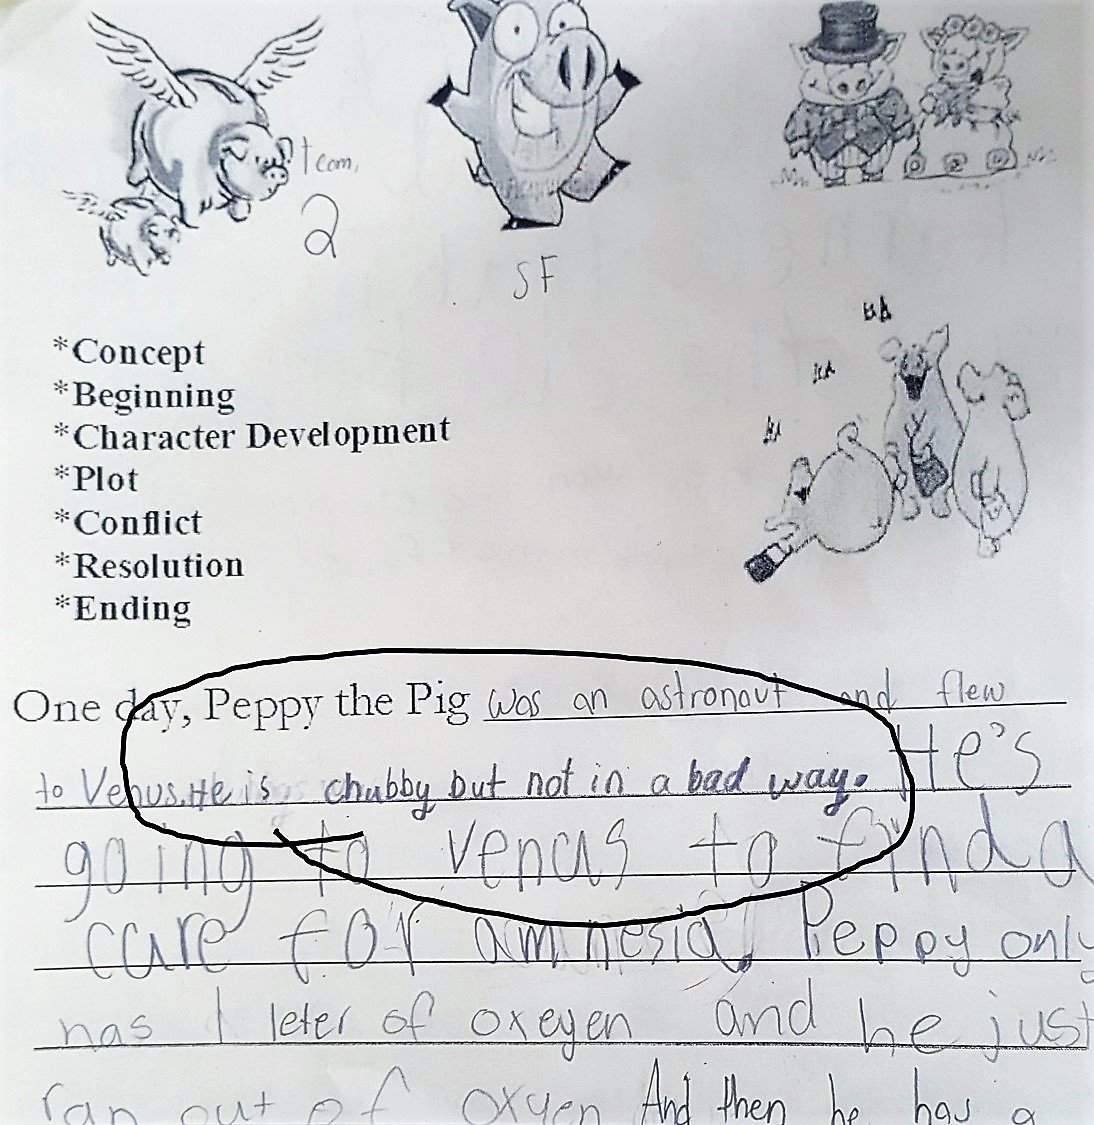 HA
HA
HA
team,
2
SF
*Concept
*Beginning
*Character Development
*Plot
*Conflict
*Resolution
*Ending
One day, Peppy the Pig was an astronaut and flew
to Venus. He is chubby but not in a bad way. He's
going to venus to find a
cure for amnesia. Peppy only
has 1 leter of oxeyen and he just
ran out of oxyen And then he has a